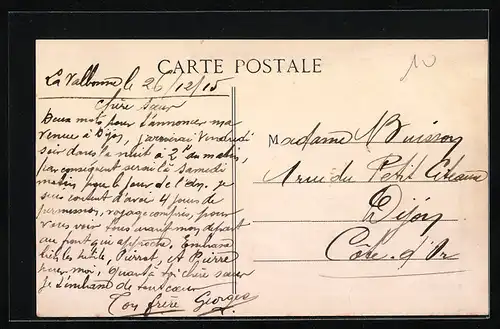 CARTE POSTALE
10
La Valbonne le 26/12/15
Chère sœur
Deux mots pour t'annoncer ma
venue à Dijon, j'arriverai Vendredi
soir dans la nuit à 2h du matin,
par conséquent serai là Samedi
matin pour le jour de l'An. je
suis content d'avoir 4 jours de
permission, voyage compris, pour
vous voir tous avant mon départ
au front qui approche. Embrasse
bien les petits, Pierrot, et Pierre
pour moi, Quant à toi chère sœur
je t'embrasse de tout cœur
Ton frère Georges
Madame Buisson
1 rue du Petit Citeaux
Dijon
Côte-d'Or